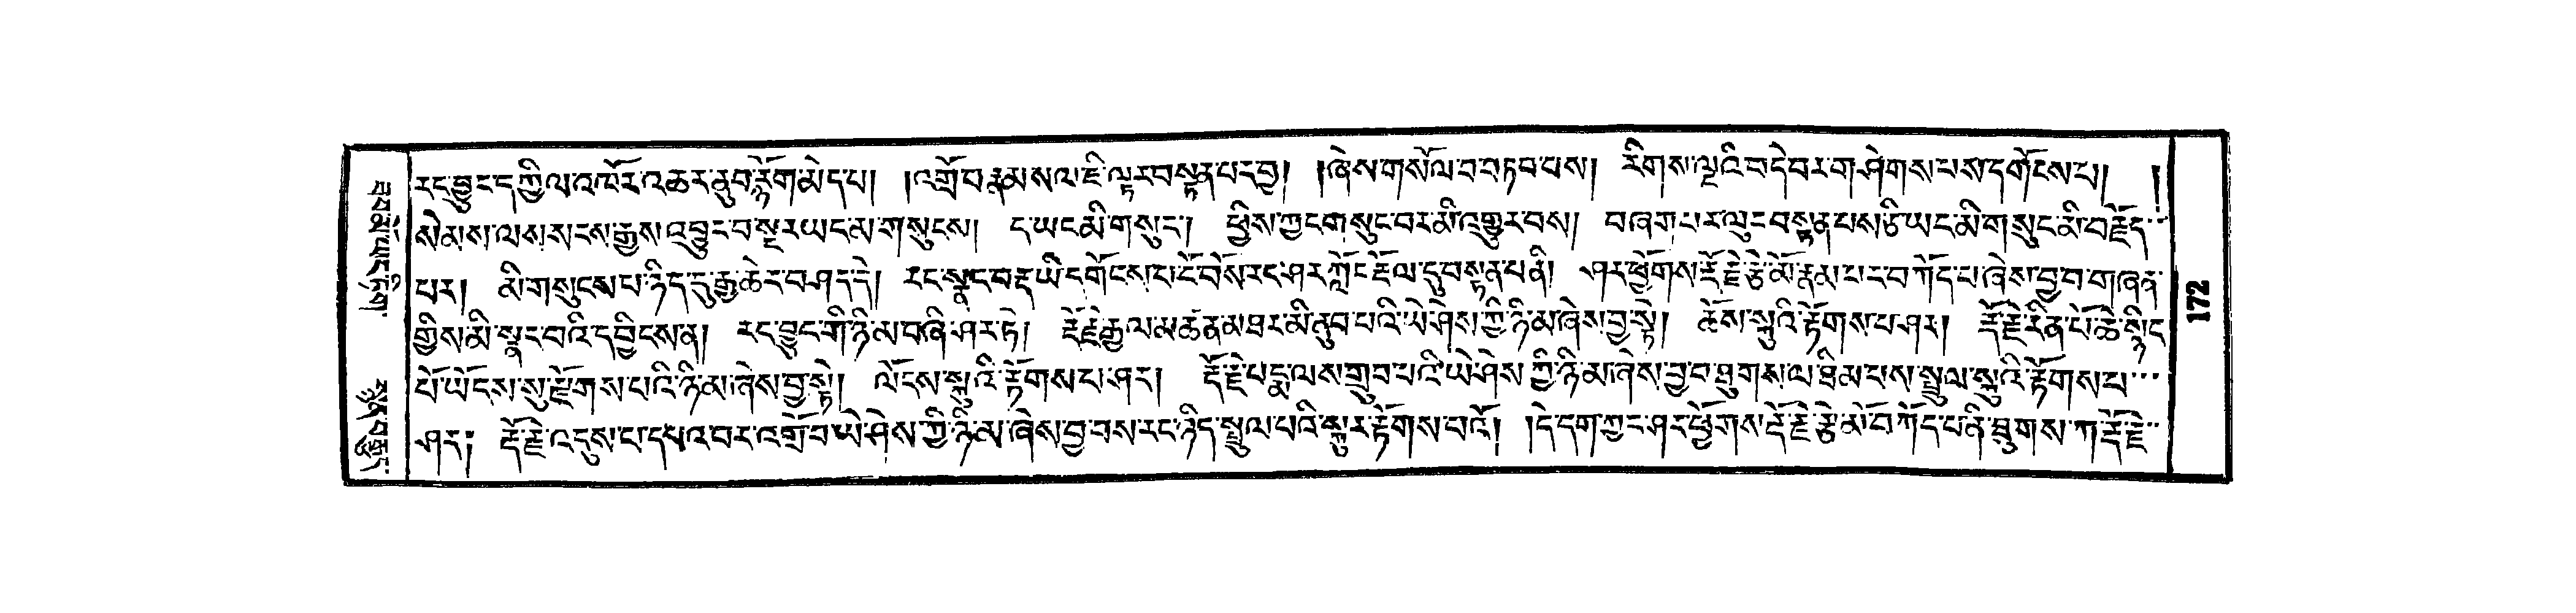 རང་བྱུང་དཀྱིལ་འཁོར་འཆར་ནུབ་རྟོག་མེད་པ། །འགྲོ་བ་རྣམས་ལ་ཇི་ལྟར་བསྟན་པར་བྱ། །ཞེས་གསོལ་བ་བཏབ་པས། རིགས་ལྔའི་བདེ་བར་གཤེགས་པས་དགོངས་པ། །
སེམས་ལས་སངས་རྒྱས་འབྱུང་བ་སྔར་ཡང་མ་གསུངས། ད་ཡང་མི་གསུང་། ཕྱིས་ཀྱང་གསུང་བར་མི་འགྱུར་བས། བཞག་པར་ལུང་བསྟན་པས་ཅི་ཡང་མི་གསུང་མི་བརྗོད་
པར། མི་གསུངས་པ་ཉིད་དུ་རྒྱ་ཆེར་བཤད་དེ། རང་སྣང་བརྡ་ཡི་དགོངས་པ་ངོ་བོས་རང་ཤར་ཀློང་རྡོལ་དུ་བསྟན་པནི། ཤར་ཕྱོགས་རྡོ་རྗེ་རྩེ་མོ་རྣམ་པར་བཀོད་པ་ཞེས་བྱ་བ་གཞན་
གྱིས་མི་སྣང་བའི་དབྱིངས་ན། རང་བྱུང་གི་ཉི་མ་བཞི་ཤར་ཏེ། རྡོ་རྗེ་རྒྱལ་མཚན་མཐར་མི་ནུབ་པའི་ཡེ་ཤེས་ཀྱི་ཉི་མ་ཞེས་བྱ་སྟེ། ཆོས་སྐུའི་རྟོགས་པ་ཤར། རྡོ་རྗེ་རིན་པོ་ཆེ་སྙིང་
པོ་ཡོངས་སུ་རྫོགས་པའི་ཉི་མ་ཞེས་བྱ་སྟེ། ལོངས་སྐུའི་རྟོགས་པ་ཤར། རྡོ་རྗེ་པདྨ་ལས་གྲུབ་པའི་ཡེ་ཤེས་ཀྱི་ཉི་མ་ཞེས་བྱ་བ་ཐུགས་ལ་ཐིམ་པས་སྤྲུལ་སྐུའི་རྟོགས་པ་
ཤར། རྡོ་རྗེ་འདུས་པ་དཔའ་བར་འགྲོ་བ་ཡེ་ཤེས་ཀྱི་ཉི་མ་ཞེས་བྱ་བས་རང་ཉིད་སྤྲུལ་པའི་སྐུར་རྟོགས་པའོ། །དེ་དག་ཀྱང་ཤར་ཕྱོགས་རྡོ་རྗེ་རྩེ་མོ་བཀོད་པ་ནི་ཐུགས་ཀ་རྡོ་རྗེ་
172